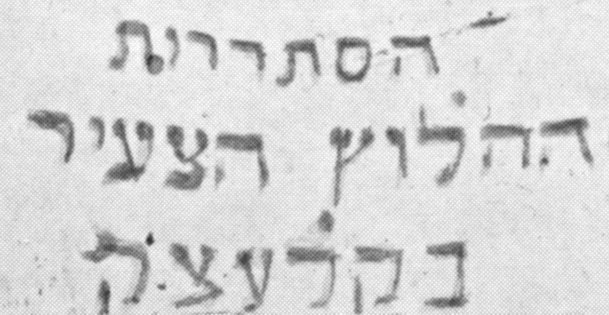 הסתדרות
החלוץ הצעיר
בקלעצק